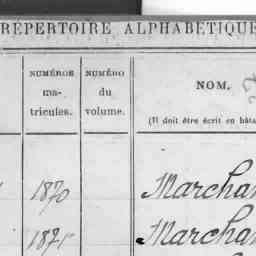 RÉPERTOIRE ALPHABÉTIQUE
NUMÉROS
ma-
tricules.
NUMÉRO
du
volume.
NOM.
(Il doit être écrit en bâta
1870
Marcha
1871
Marcha